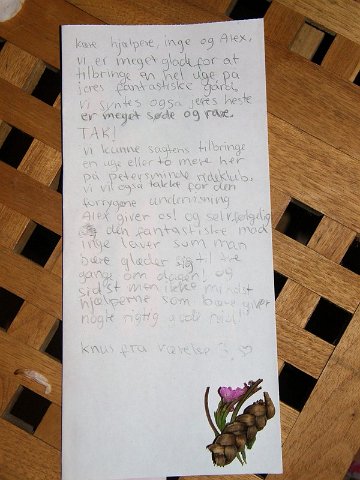 kære hjælpere, inge og Alex,
vi er meget glade for at
tilbringe en hel uge på
jeres fantastiske gård,
vi syntes også jeres heste
er meget søde og rare.
TAK!
vi kunne sagtens tilbringe
en uge eller to mere her
på petersminde rideklub.
vi vil også takke for den
forrygene undervisning
Alex giver os! og selvfølgelig
den fantastiske mad
inge laver som man
bare glæder sig til! tre
gange om dagen! og
sidst men ikke mindst
hjælperne som bare giver
nogle rigtig gode råd!
knus fra værelse